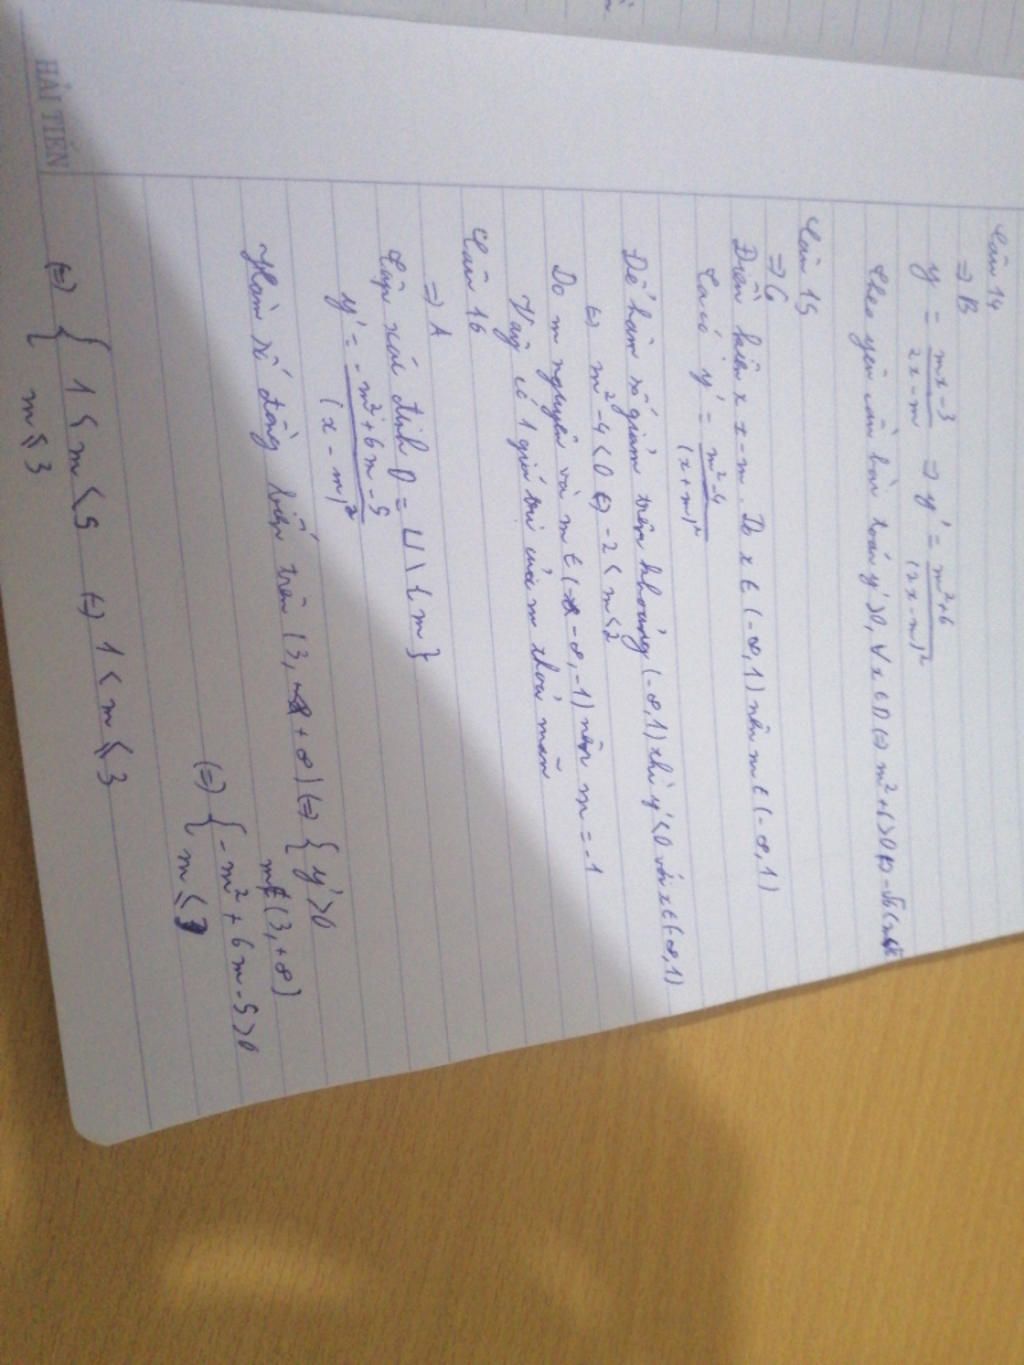 HẢI TIẾN
Câu 14
⇒ B
y = (mx - 3)/(2x - m) ⇒ y' = (-m² + 6)/(2x - m)²
Theo yêu cầu bài toán y' > 0, ∀x ∈ D ⇔ m² + 6 > 0 ⇔ -√6 <
Câu 15
⇒ C
Điều kiện x ≠ -m. Do x ∈ (-∞, 1) nên m ∈ (-∞, 1)
Ta có y' = (m² - 4)/(x + m)²
Để hàm số giảm trên khoảng (-∞, 1) thì y' < 0 với x ∈ (-∞, 1)
⇔ m² - 4 < 0 ⇔ -2 < m < 2
Do m nguyên và m ∈ (-∞, -1) nên m = -1
Vậy có 1 giá trị của m thoả mãn
Câu 16
⇒ A
Tập xác định D = \ {m}
y' = (-m² + 6m - 5)/(x - m)²
Hàm số đồng biến trên (3, +∞) ⇔ { y' > 0
m ∉ (3, +∞)
⇔ { -m² + 6m - 5 > 0
m ≤ 3
⇔ { 1 < m < 5 ⇔ 1 < m ≤ 3
m ≤ 3